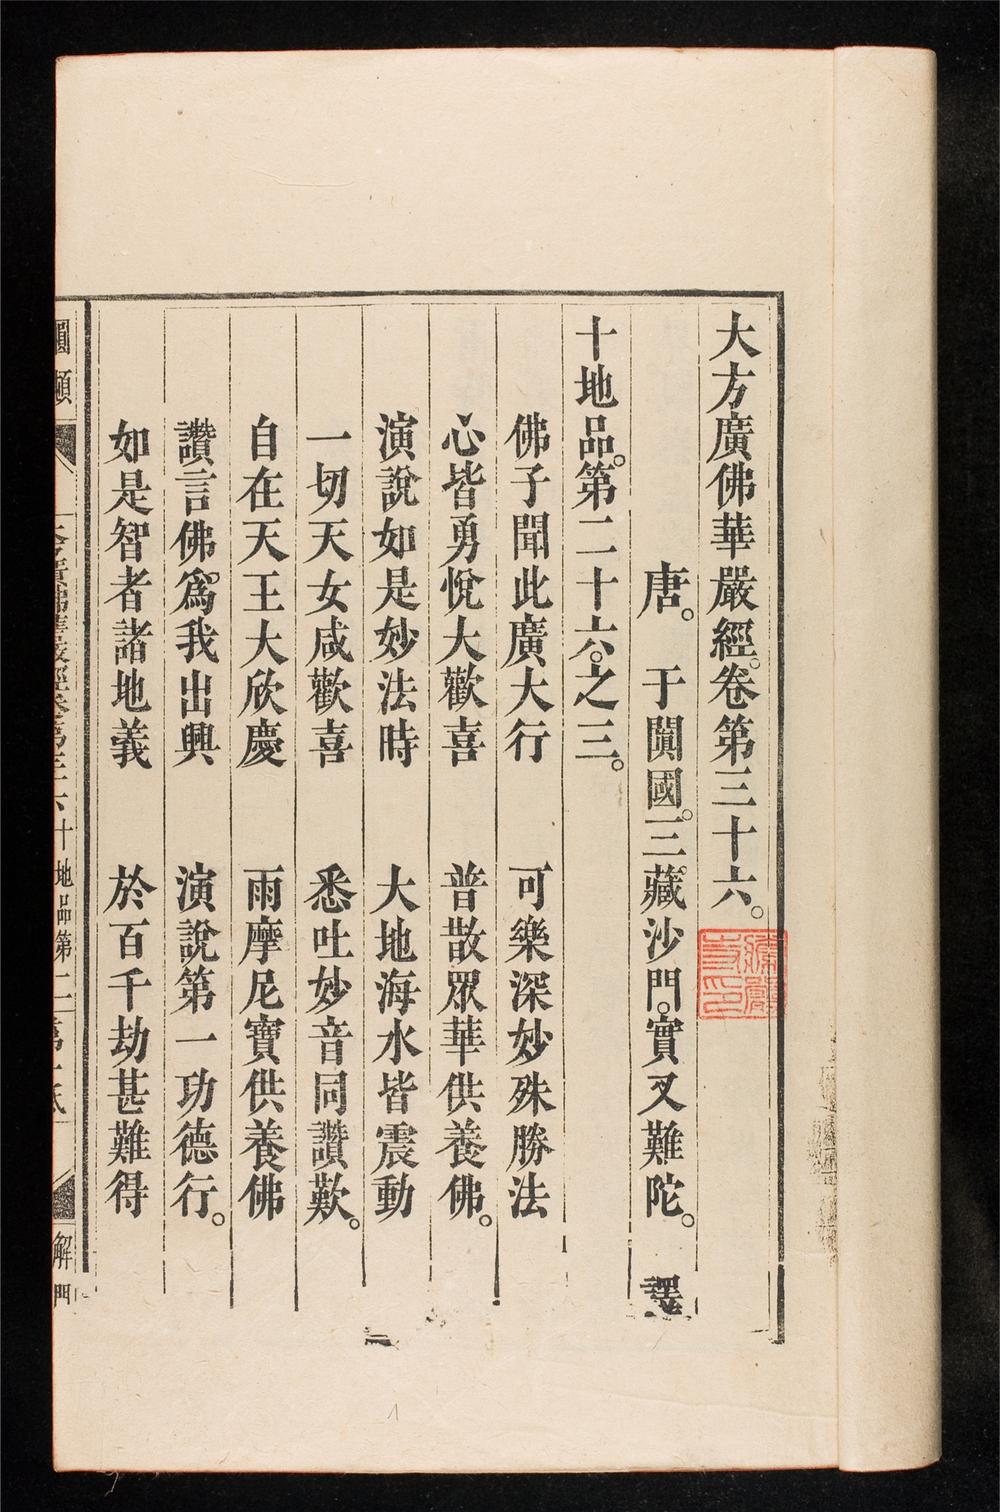 大方廣佛華嚴經。卷第三十六。
唐。于闐國。三藏沙門。實叉難陀。譯
十地品。第二十六。之三。
佛子聞此廣大行 可樂深妙殊勝法
心皆勇悅大歡喜 普散眾華供養佛。
演說如是妙法時 大地海水皆震動
一切天女咸歡喜 悉吐妙音同讚歎。
自在天王大欣慶 雨摩尼寶供養佛
讚言佛為我出興 演說第一功德行。
如是智者諸地義 於百千劫甚難得
大方廣佛華嚴經卷第三六 十地品第二 第一紙
解門